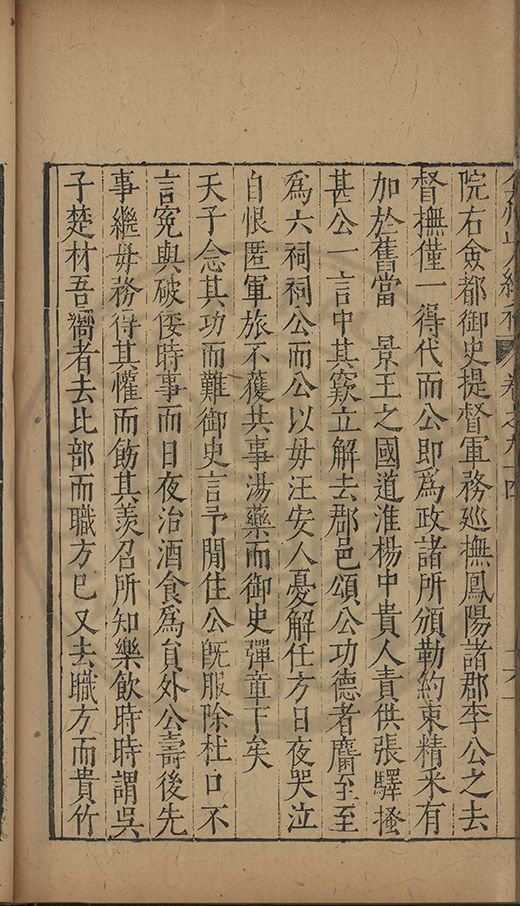 弇州山人續稿 卷之九十四
院右僉都御史提督軍務廵撫鳳陽諸郡李公之去
督撫僅一得代而公即為政諸所頒勒約束精采有
加於舊當 景王之國道淮楊中貴人責供張驛搔
甚公一言中其窾立解去郡邑頌公功德者麕至至
為六祠祠公而公以毋汪安人憂解任方日夜哭泣
自恨匿軍旅不獲共事湯藥而御史彈章下矣
天子念其功而難御史言予閒住公旣服除杜口不
言寃與破倭時事而日夜治酒食為員外公壽後先
事繼毋務得其懽而飭其羡召所知樂飲時時謂吳
子楚材吾嚮者去比部而職方已又去職方而貴竹